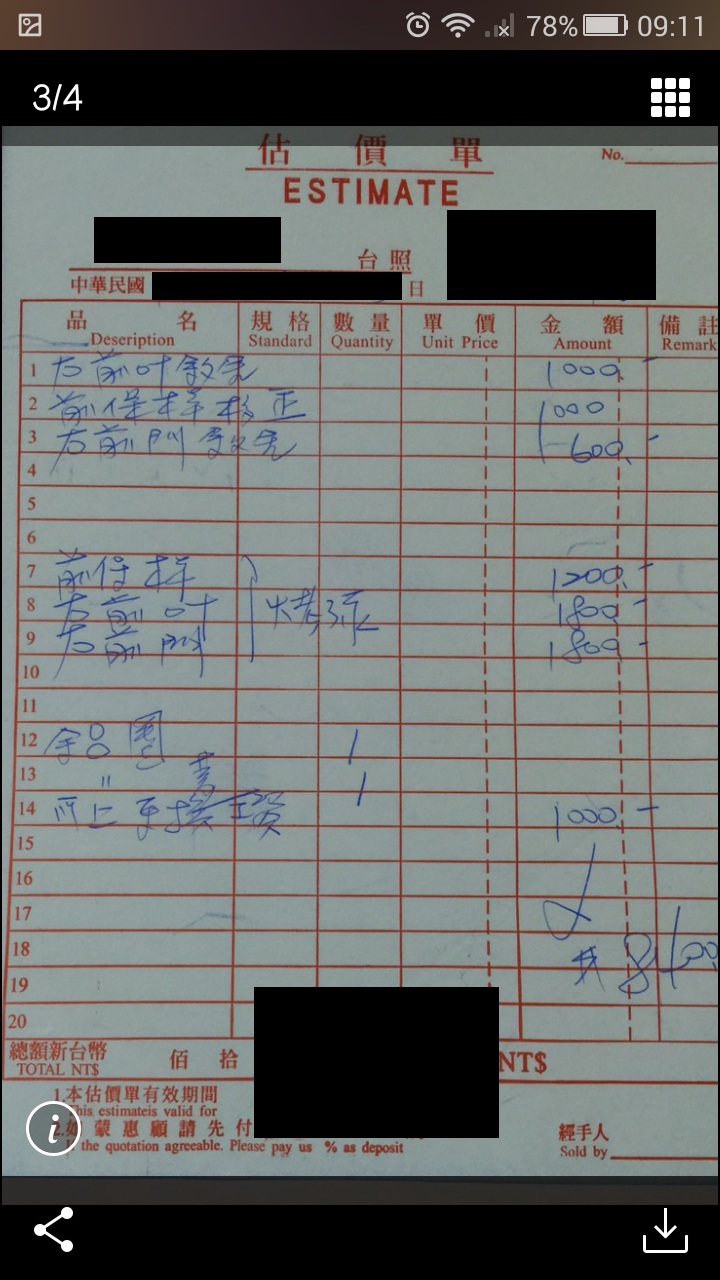 78% 09:11
3/4
估價單
No.
ESTIMATE
台照
中華民國 日
品名 規格 數量 單價 金額 備註
Deseription Standard Quantity Unit Price Amount Remark
1 右前叶鈑金 1000.-
2 前保桿校正 1000
3 右前門鈑金 600.-
4
5
6
7 前保桿 1200.-
8 右前叶 烤漆 1800.-
9 右前門 1800.-
10
11
12 鋁圈 1
13 〃 蓋 1
14 以上更換工資 1000.-
15
16
17
18 # 8400
19
20
總額新台幣 佰拾
TOTAL NT$ NT$
1.本估價單有效期間
This estimateis valid for
2.如蒙惠顧請先付
If the quotation agreeable. Please pay us % as deposit
經手人
Sold by